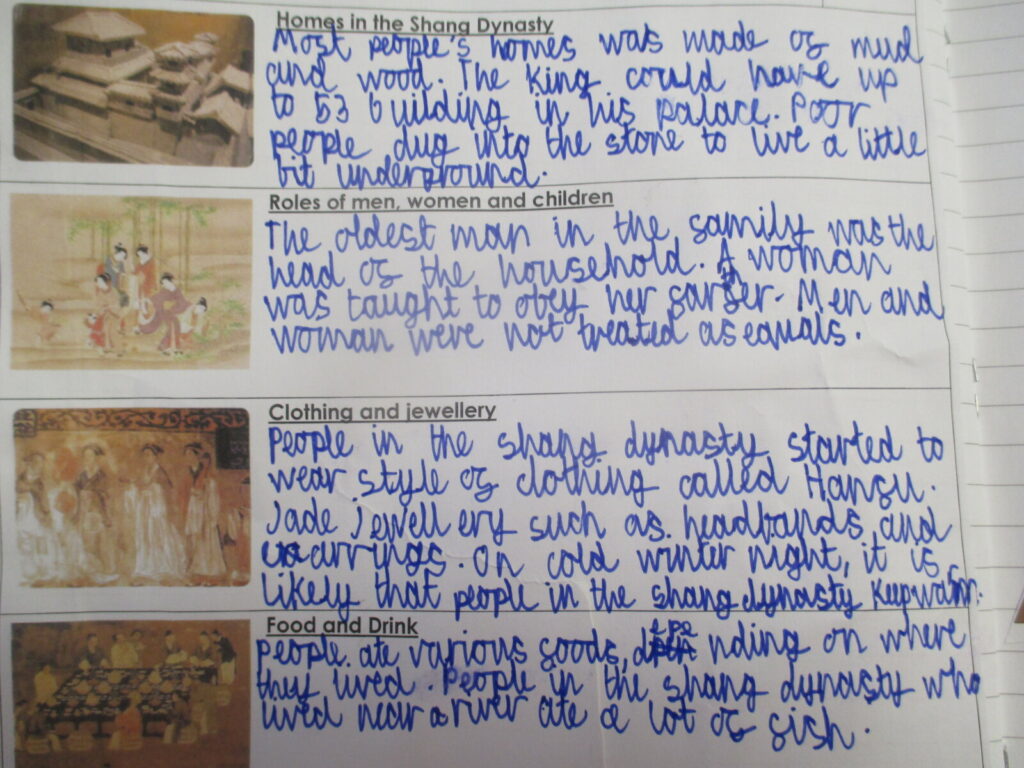 Homes in the Shang Dynasty
Most people's homes was made of mud
and wood. The King could have up
to 53 building in his palace. Poor
people dug into the stone to live a little
bit underground.
Roles of men, women and children
The oldest man in the family was the
head of the household. A woman
was taught to obey her farther. Men and
woman were not treated as equals.
Clothing and jewellery
People in the shang dynasty started to
wear style of clothing called Hanfu.
Jade Jewellery such as headbands and
earrings. On cold winter night, it is
likely that people in the shang dynasty Keep warm.
Food and Drink
People ate various foods, depending on where
they lived. People in the shang dynasty who
lived near a river ate a lot of fish.